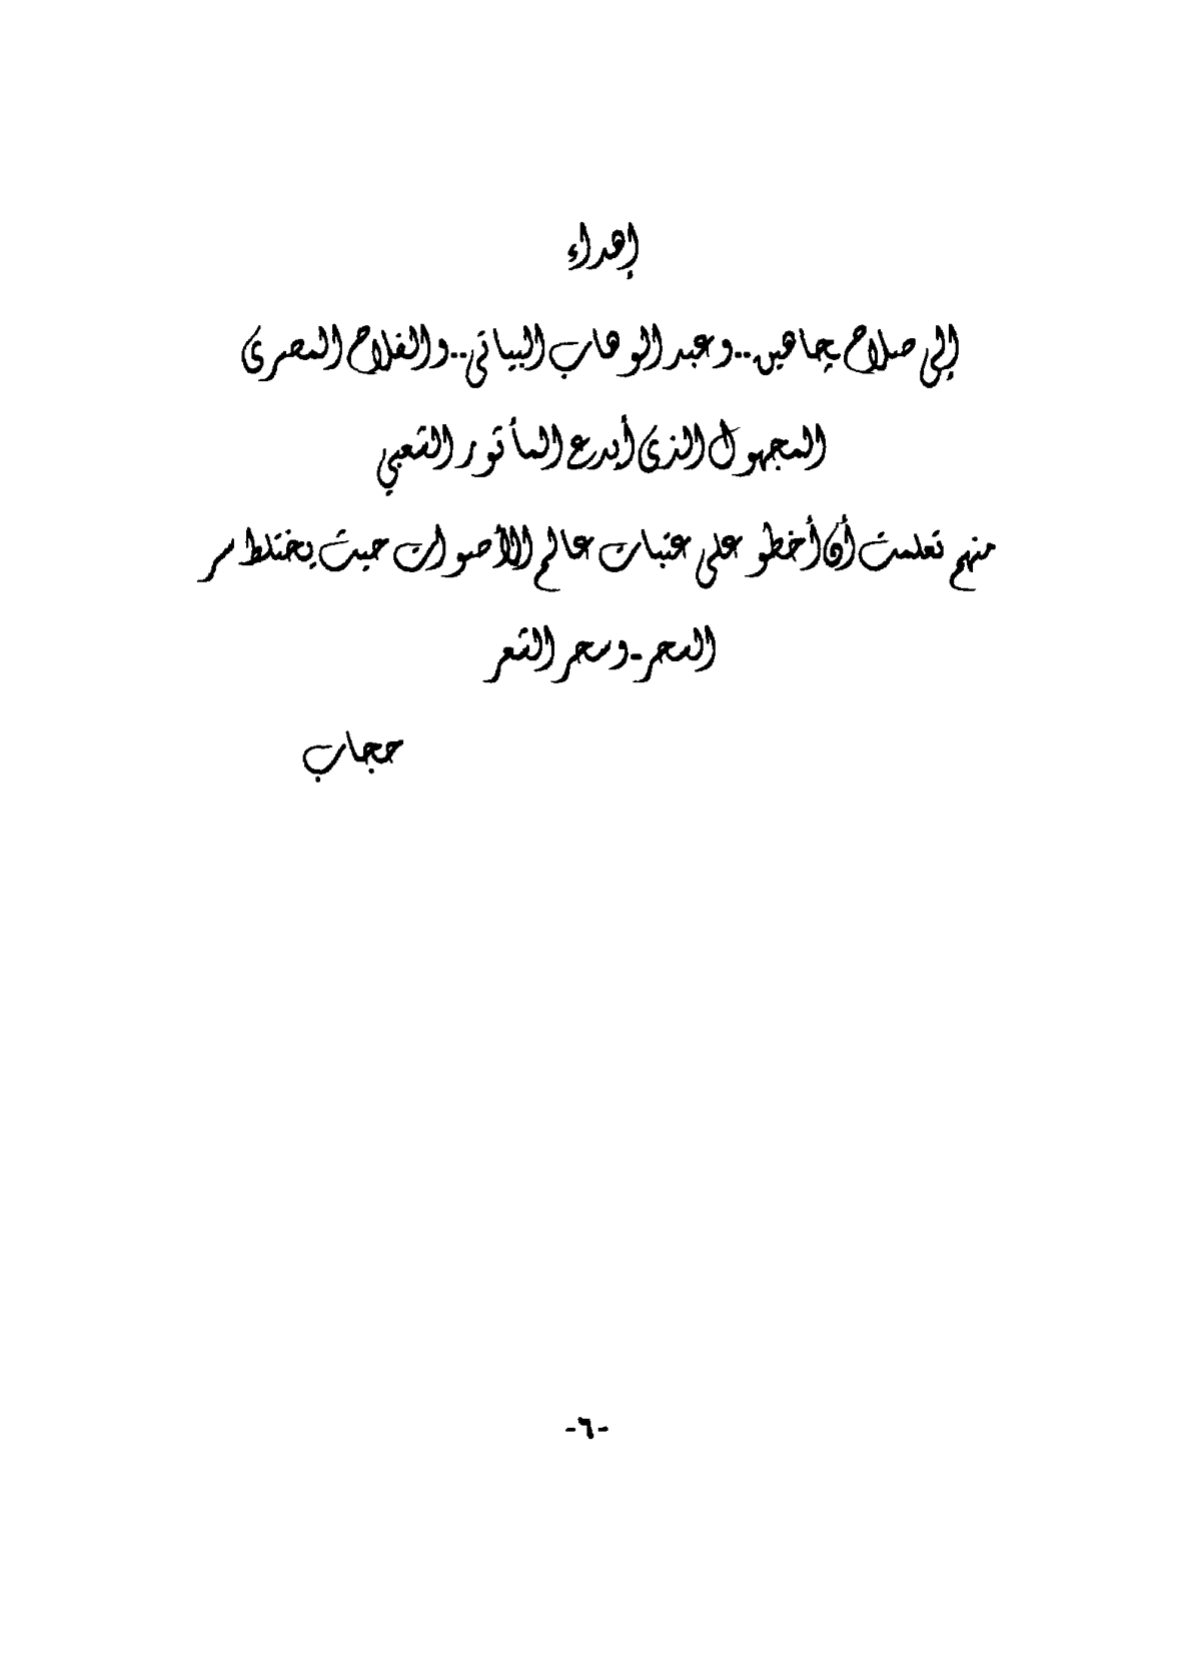 إهداء
إلى صلاح چاهين.. وعبد الوهاب البياتى.. والفلاح المصرى
المجهول الذى أبدع المأثور الشعبي
منهم تعلمت أن أخطو على عتبات عالم الأصوات حيث يختلط سر
السحر - وسحر الشعر
حجاب
-٦-